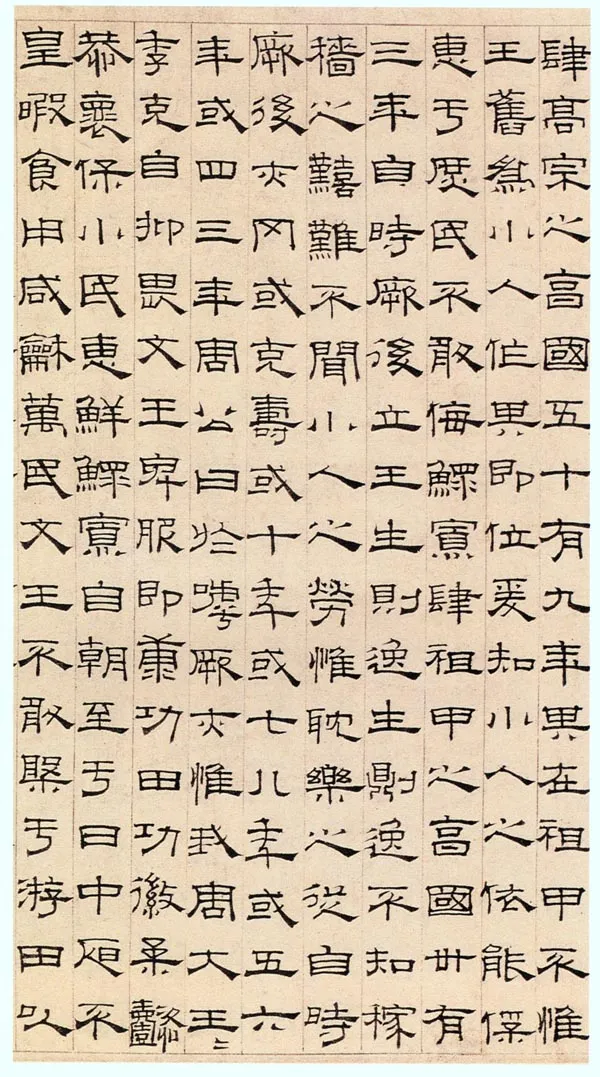 肆高宗之亯國五十有九年其在祖甲不惟
王舊為小人作其即位爰知小人之依能保
惠于庶民不敢侮鰥寡肆祖甲之亯國卅有
三年自時厥後立王生則逸生則逸不知稼
穡之囏難不聞小人之勞惟耽樂之從自時
厥後亦罔或克壽或十年或七八年或五六
年或四三年周公曰於嘑厥亦惟我周大王〻
季克自抑畏文王卑服即康功田功徽柔懿
恭褱保小民惠鮮鰥寡自朝至于日中昃不
皇暇食用咸龢萬民文王不敢槃于游田以